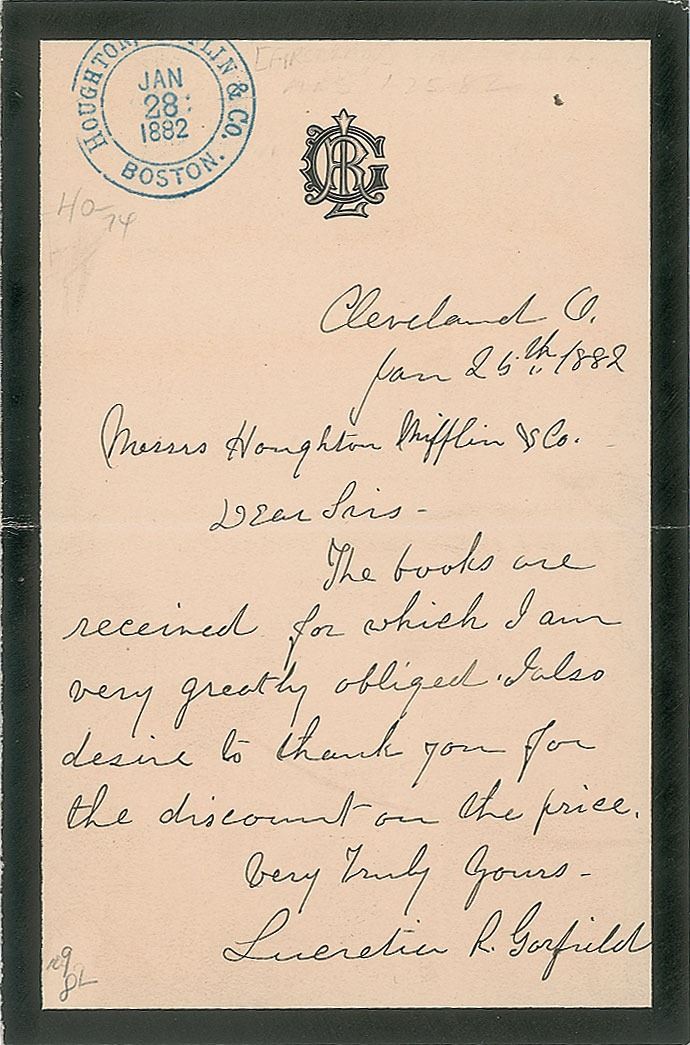 HOUGHTON, MIFFLIN & CO.
JAN
28
1882
BOSTON.
LRG
Cleveland O.
Jan 26th, 1882
Messrs Houghton Mifflin & Co.
Dear Sirs -
The books are
received for which I am
very greatly obliged. I also
desire to thank you for
the discount on the price.
Very Truly Yours -
Lucretia R. Garfield